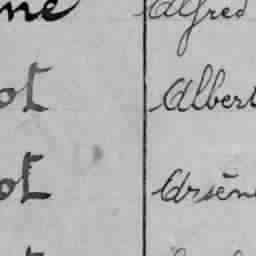 ne Alfred
ot Albert
ot Arsèn